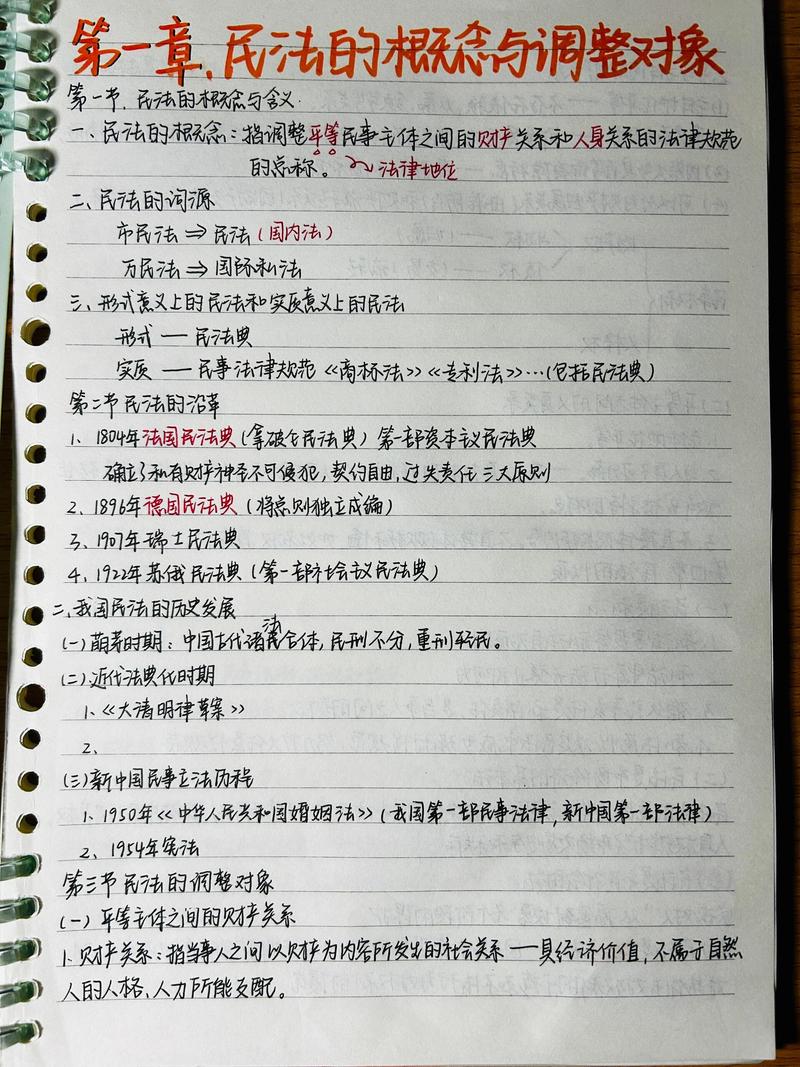 第一章.民法的概念与调整对象
第一节.民法的概念与含义.
一、民法的概念：指调整平等民事主体之间的财产关系和人身关系的法律规范
的总称。 法律地位
二、民法的词源
市民法⇒民法(国内法)
万民法⇒国际私法
三、形式意义上的民法和实质意义上的民法
形式 — 民法典
实质 — 民事法律规范《商标法》《专利法》…(包括民法典)
第二节 民法的沿革
1. 1804年法国民法典(拿破仑民法典) 第一部资本主义民法典
确立了私有财产神圣不可侵犯,契约自由,过失责任 三大原则
2. 1896年德国民法典 (将总则独立成编)
3. 1907年瑞士民法典
4. 1922年苏俄民法典 (第一部社会主义民法典)
二、我国民法的历史发展
(一)萌芽时期：中国古代诸法合体,民刑不分,重刑轻民。
(二)近代法典化时期
1.《大清明律草案》
2.
(三)新中国民事立法历程
1. 1950年《中华人民共和国婚姻法》(我国第一部民事法律,新中国第一部法律)
2. 1954年宪法
第三节 民法的调整对象
(一)平等主体之间的财产关系
1.财产关系：指当事人之间以财产为内容所发出的社会关系 —具经济价值,不属于自然
人的人格、人力所能支配。